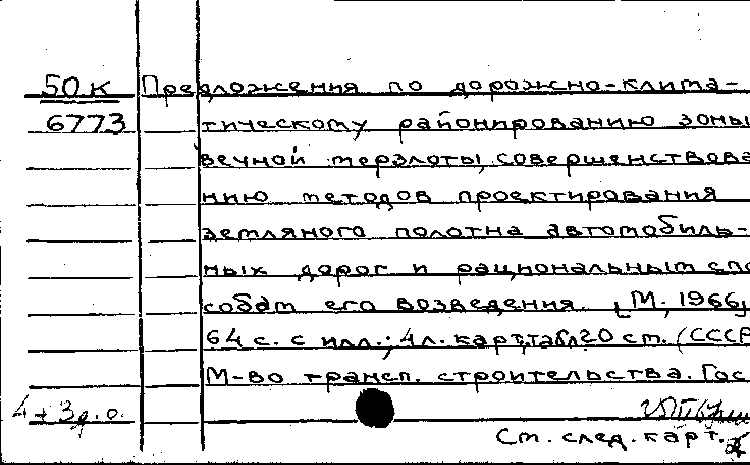 50К Предложения по дорожно-клима-
6773 тическому районированию зоны
вечной мерзлоты, совершенствова
нию методов проектирования
земляного полотна автомобиль-
ных дорог и рациональным спо
собам его возведения. [М., 1966]
64 с. с илл.; 4 л. карт, табл 20 см. (СССР
М-во трансп. строительства. Гос
4 + 3д.о.
См. след. карт.